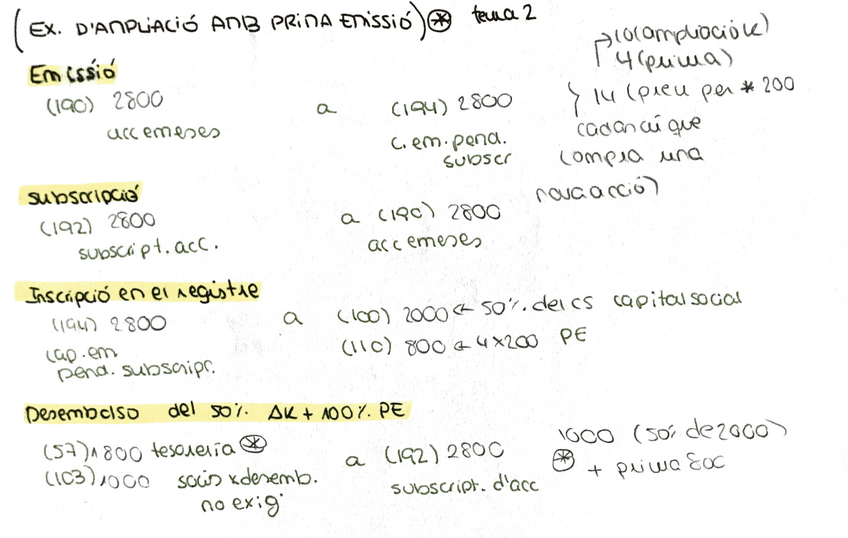 (EX. D'AMPLIACIÓ AMB PRIMA EMISSIÓ) * tema 2
10 (ampliació k)
4 (prima)
14 (preu per * 200
cadascú que
compra una
nova acció)
Emissió
(190) 2800 a (194) 2800
acc emeses
c. em. pend.
subscr
subscripció
(192) 2800 a (190) 2800
subscript. acc.
acc emeses
Inscripció en el registre
(194) 2800 a (100) 2000 ← 50%. del cs capital social
(110) 800 ← 4x200 PE
cap. em
pend. subscripr.
Desemborlso del 50%. ΔK + 100%. PE
(57) 1800 tesoreria *
(103) 1000 socis x desemb.
no exig.
a (192) 2800
subscript. d'acc
1000 (50% de 2000)
* + prima 800